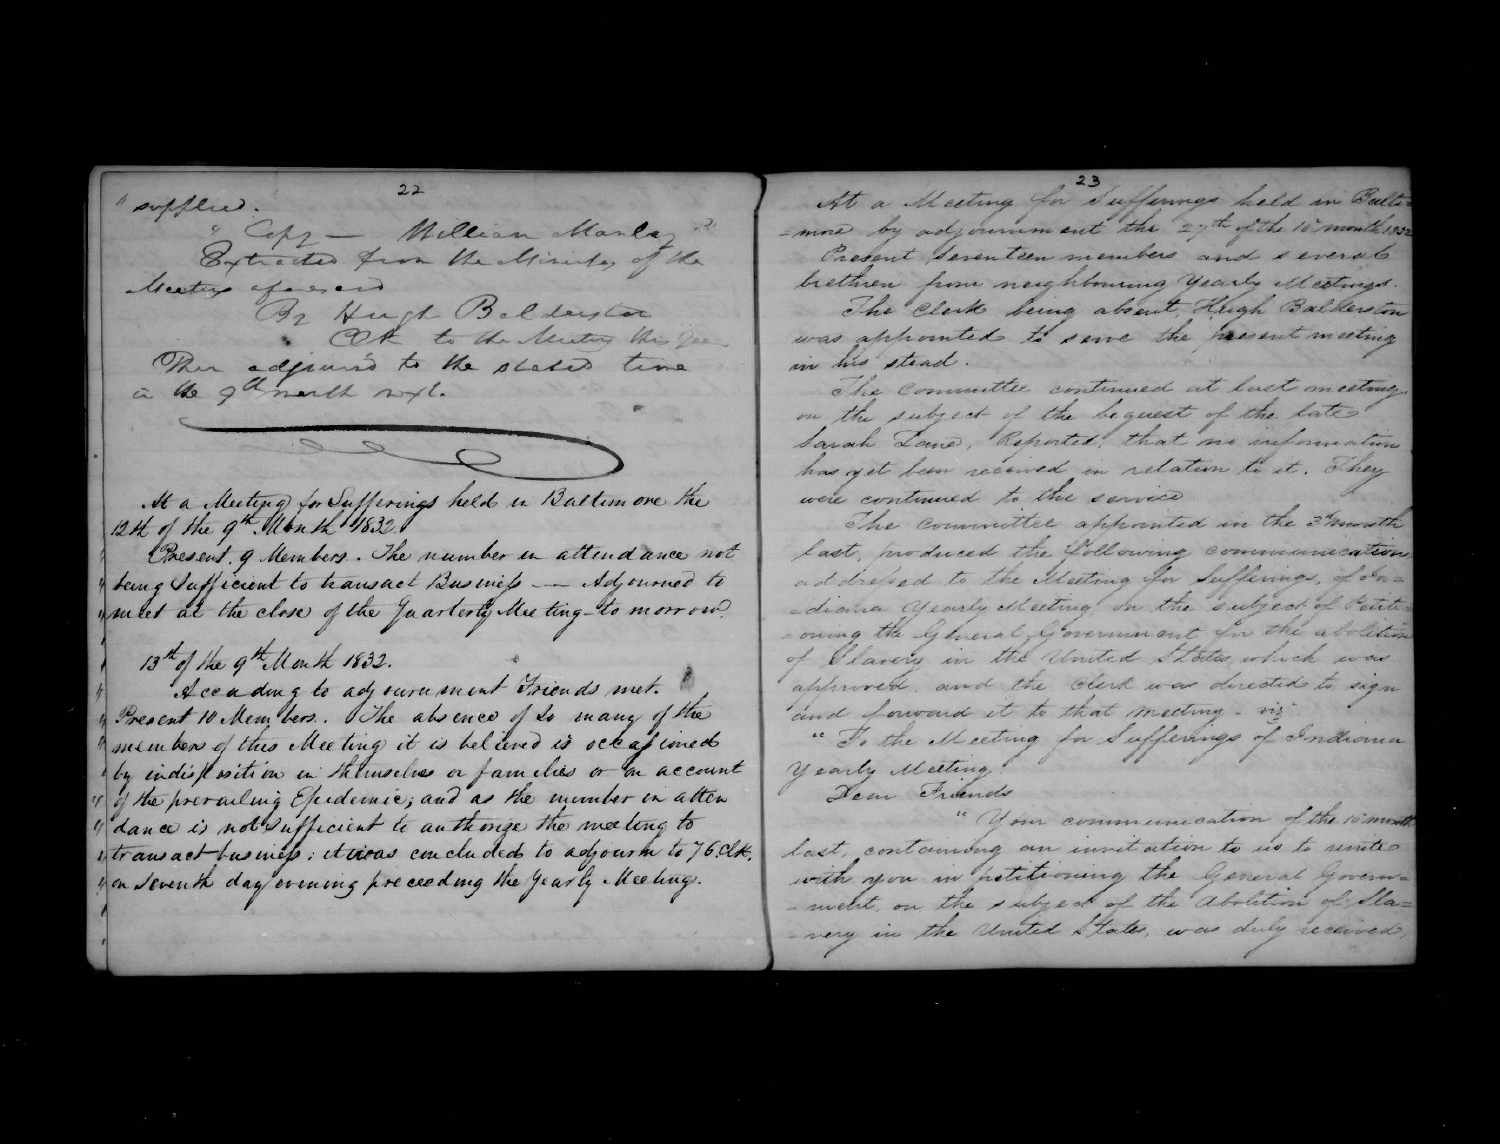 22
" supplied.
" Copy — William Manley
Extracted from the Minutes of the
Meeting aforesaid
By Hugh Balderston
Clk to the Meeting this year
Then adjourn'd to the stated time
in the 9th month next.
At a Meeting for Sufferings held in Baltimore the
12th of the 9th Month 1832.
Present. 9 Members. The number in attendance not
being Sufficient to transact Business — Adjourned to
meet at the close of the Quarterly Meeting to morrow.
13th of the 9th Month 1832.
According to adjournment Friends met.
Present 10 Members. The absence of so many of the
members of this Meeting it is believed is occasioned
by indisposition in themselves or families or on account
of the prevailing Epidemic; and as the number in atten
dance is not Sufficient to authorize the meeting to
transact business; it was concluded to adjourn to 7 O.Clk.
on Seventh day evening preceeding the Yearly Meeting.
23
At a Meeting for Sufferings held in Balti=
=more by adjournment the 27th of the 10 month 1832
Present seventeen members and several
brethren from neighbouring Yearly Meetings.
The Clerk being absent, Hugh Balderston
was appointed to serve the present meeting
in his stead.
The Committee continued at last meeting,
on the subject of the bequest of the late
Sarah Lane, Reported, that no information
has yet been received in relation to it. They
were continued to the service
The Committee appointed in the 3d month
last, produced the following communication
addressed to the Meeting for Sufferings, of In=
=diana Yearly Meeting on the subject of Petiti=
=oning the General Government for the abolition
of Slavery in the United States, which was
approved, and the Clerk was directed to sign
and forward it to that meeting - viz
"To the Meeting for Sufferings of Indiana
Yearly Meeting.
Dear Friends
"Your communication of the 10 month
last, containing an invitation to us to unite
with you in petitioning the General Govern=
=ment, on the subject of the Abolition of Sla=
=very in the United States, was duly received,